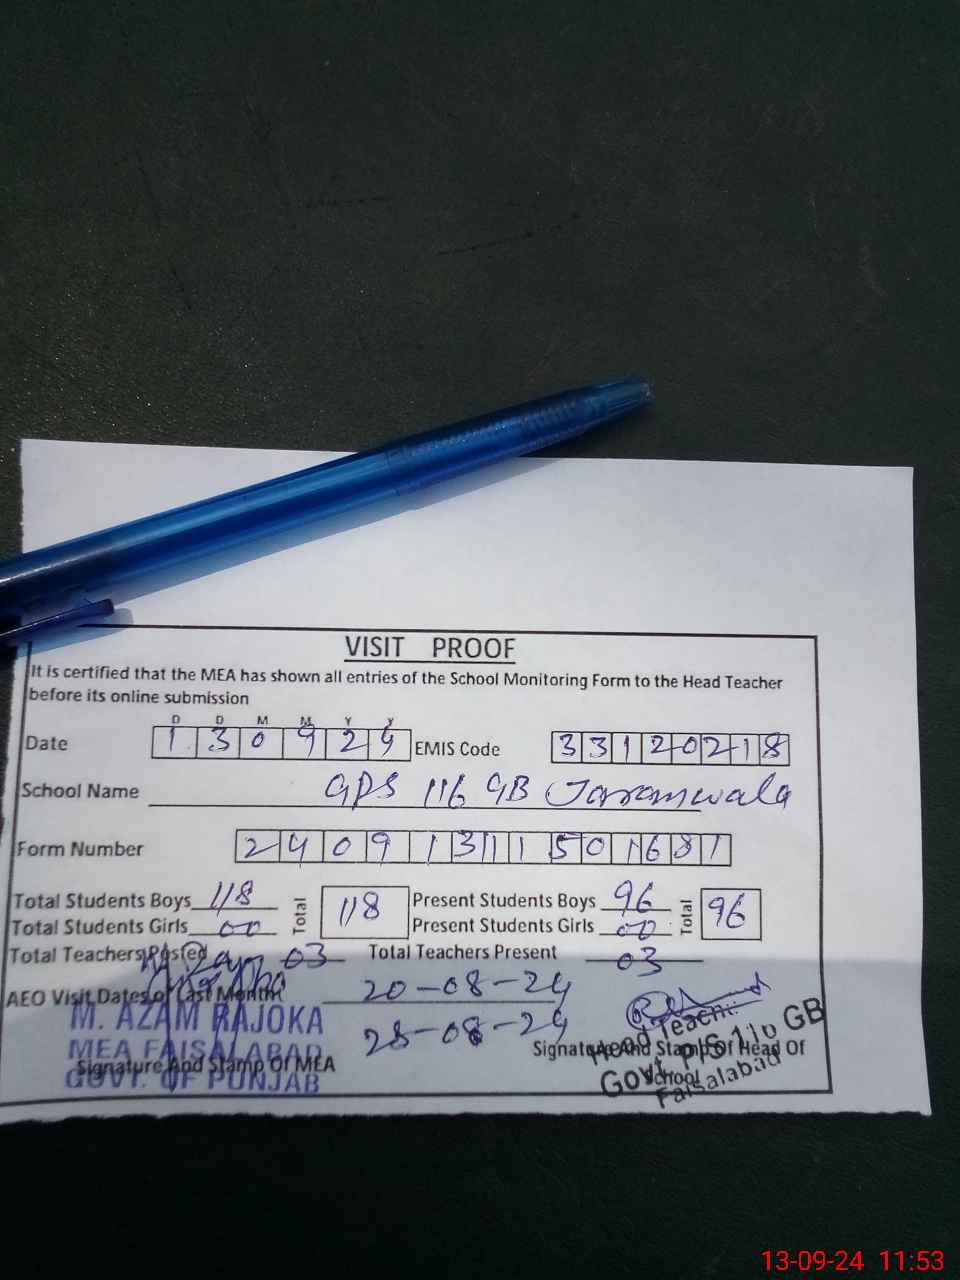 VISIT PROOF
It is certified that the MEA has shown all entries of the School Monitoring Form to the Head Teacher
before its online submission
D D M M Y Y
Date 1 3 0 9 2 4 EMIS Code 3 3 1 2 0 2 1 8
School Name GPS 116 GB Jaranwala
Form Number 2 4 0 9 1 3 1 1 1 5 0 1 6 8 1
Total Students Boys 118 Total 118 Present Students Boys 96 Total 96
Total Students Girls 00 Present Students Girls 00
Total Teachers Posted 03 Total Teachers Present 03
AEO Visit Dates of Last Month 20-08-24
28-08-24
M. AZAM RAJOKA
MEA FAISALABAD
GOVT. OF PUNJAB
Signature And Stamp Of MEA
Signature And Stamp Of Head Of
School
Head Teacher
Govt. P/S 116 GB
Faisalabad
13-09-24 11:53